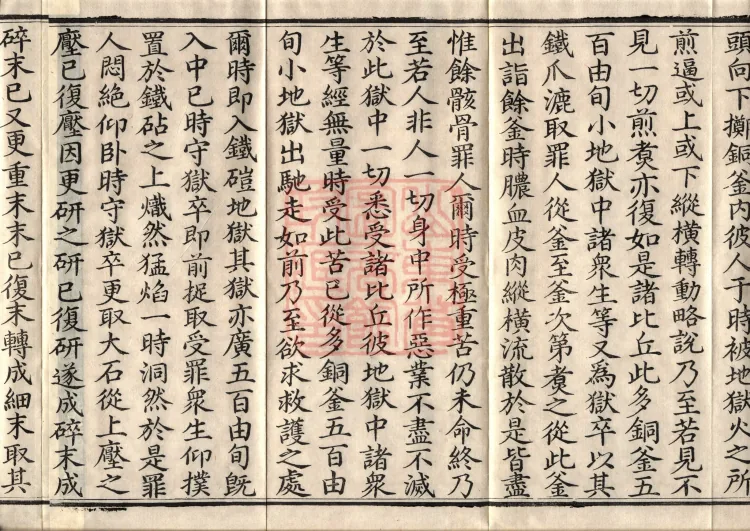 頭向下擲銅釜內彼人于時被地獄火之所
煎逼或上或下縱橫轉動略說乃至若見不
見一切煎煮亦復如是諸比丘此多銅釜五
百由旬小地獄中諸衆生等又為獄卒以其
鐵爪漉取罪人從釜至釜次第煮之從此釜
出詣餘釜時膿血皮肉縱橫流散於是皆盡
惟餘骸骨罪人爾時受極重苦仍未命終乃
至若人非人一切身中所作惡業不盡不滅
於此獄中一切悉受諸比丘彼地獄中諸衆
生等經無量時受此苦已從多銅釜五百由
旬小地獄出馳走如前乃至欲求救護之處
爾時即入鐵磑地獄其獄亦廣五百由旬旣
入中已時守獄卒即前捉取受罪衆生仰撲
置於鐵砧之上熾然猛焰一時洞然於是罪
人悶絕仰卧時守獄卒更取大石從上壓之
壓已復壓因更研之研已復研遂成碎末成
碎末已又更重末末已復末轉成細末取其